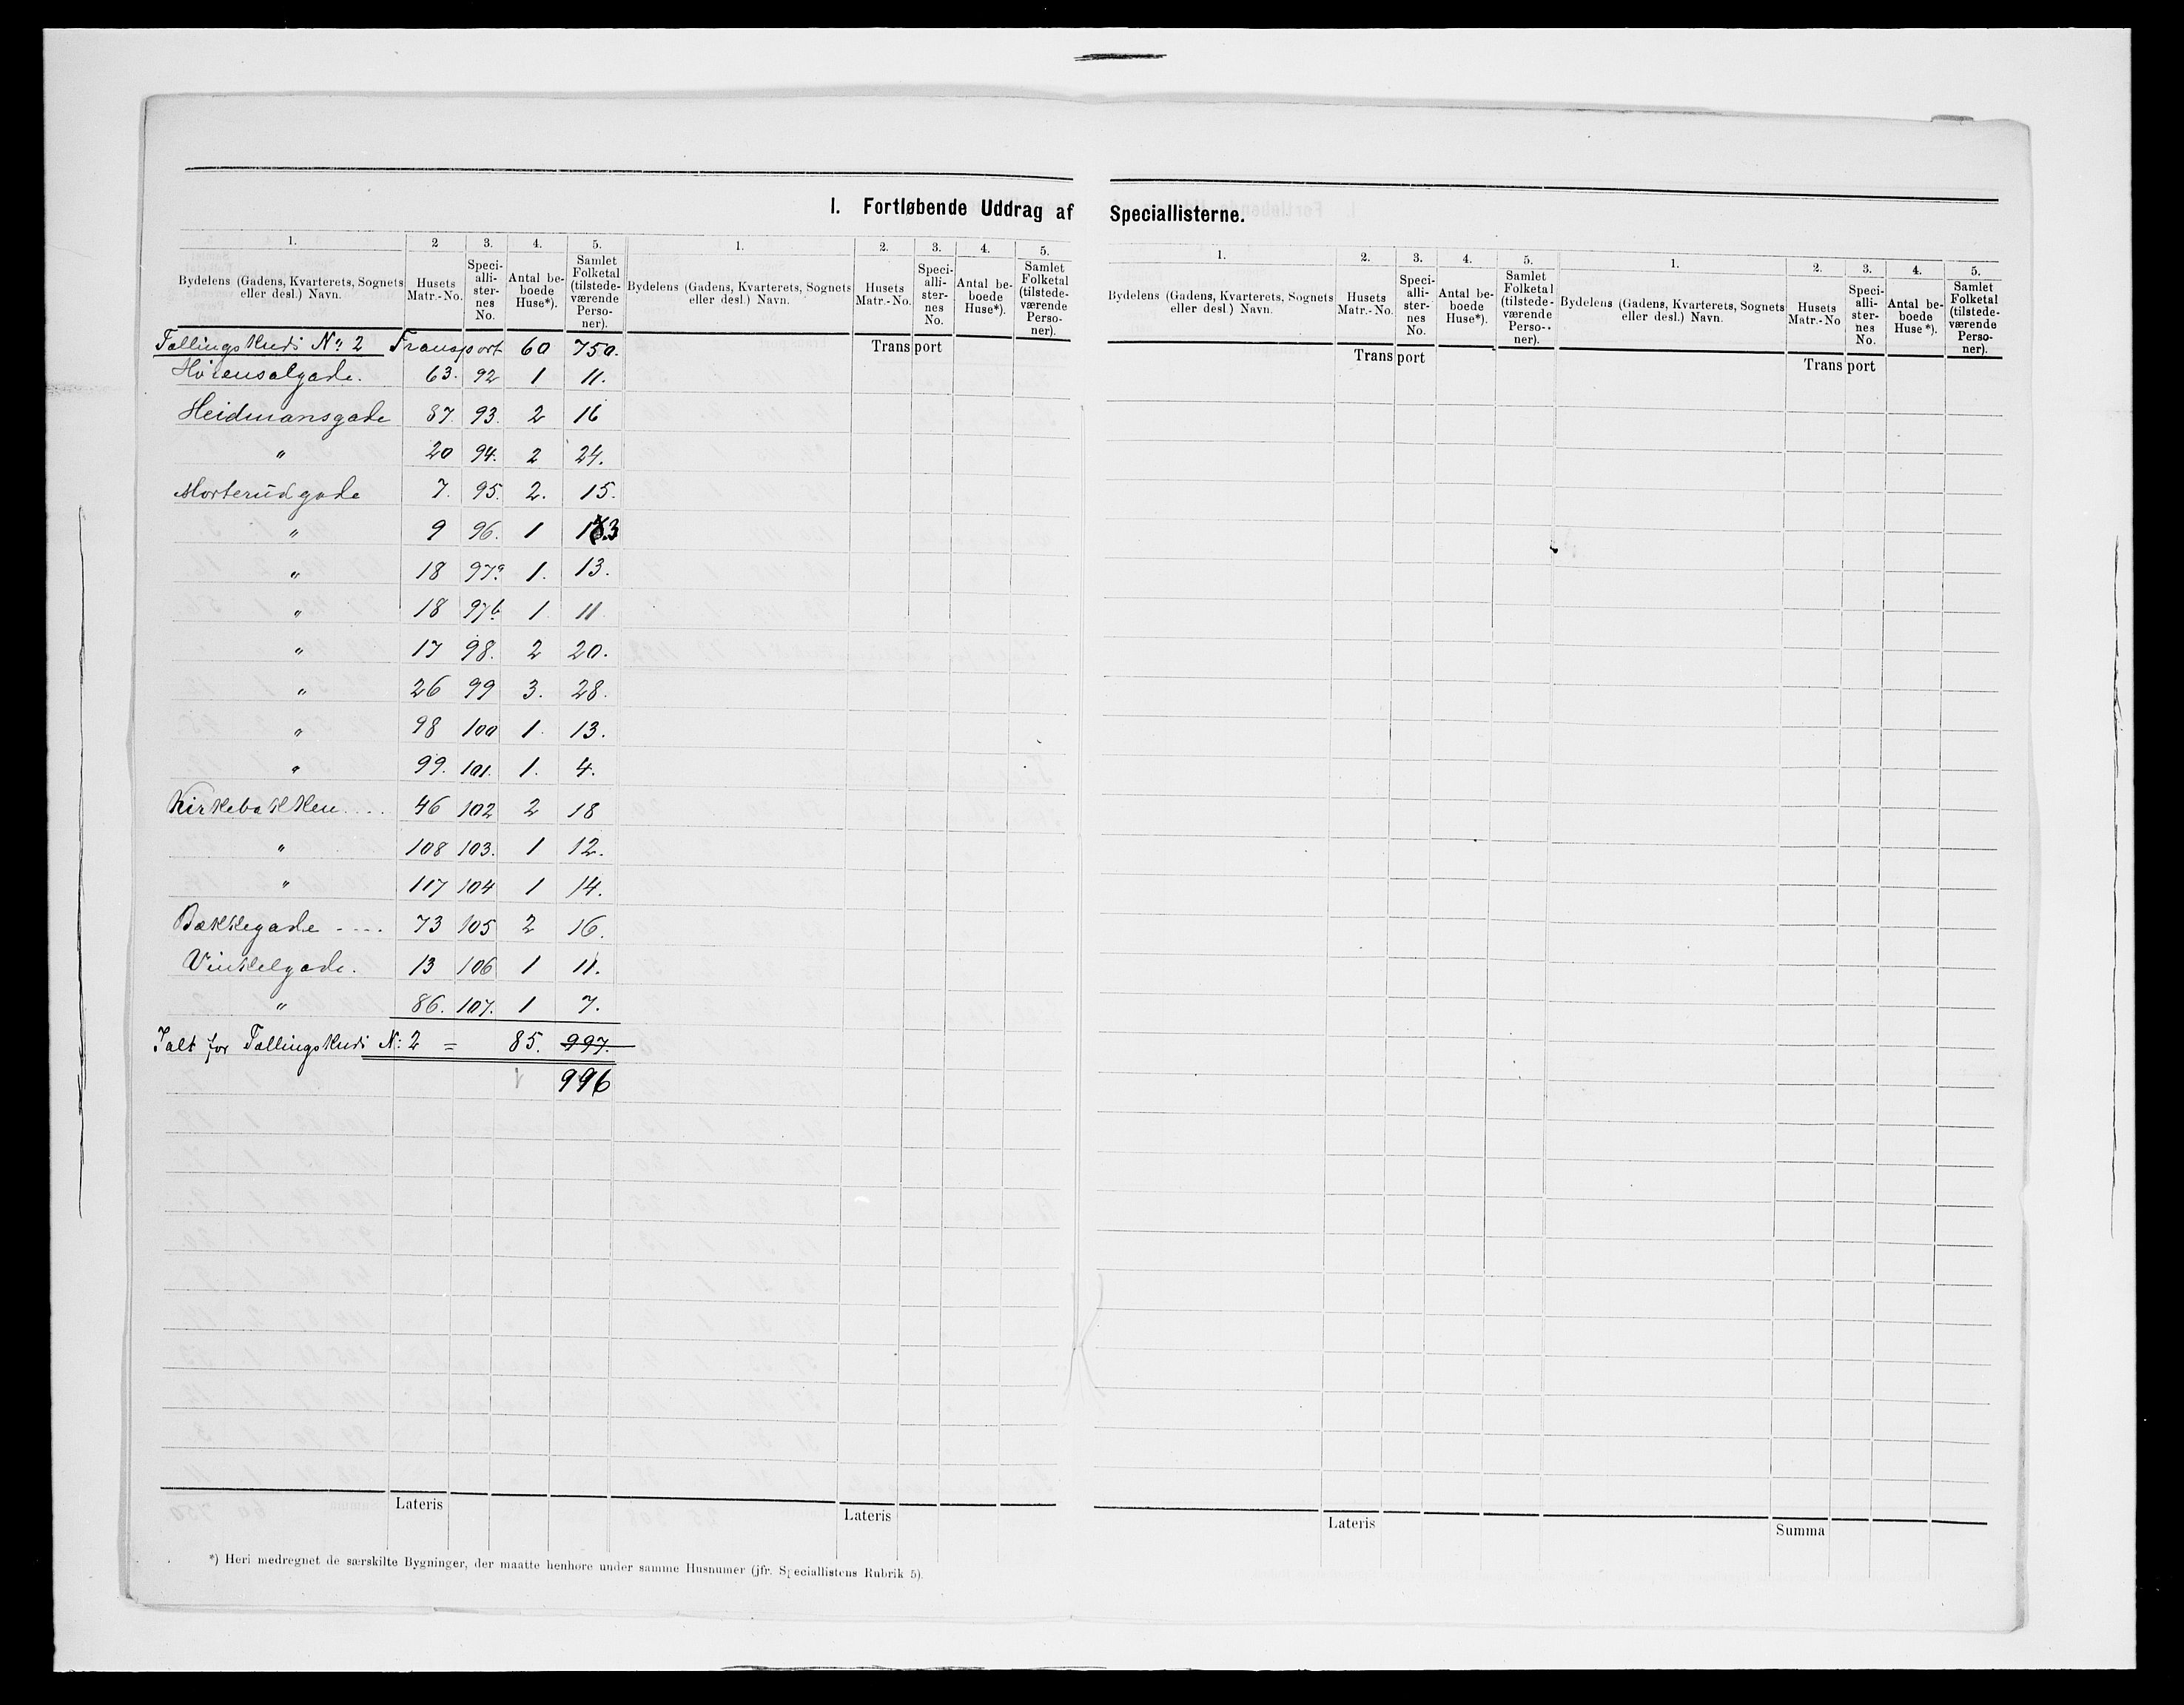 I. Fortløbende Uddrag af Speciallisterne.
1. 2 3. 4. 5. 1. 2. 3. 4. 5. 1. 2. 3. 4. 5. 1. 2. 3. 4. 5.
Bydelens (Gadens, Kvarterets, Sognets eller desl.) Navn. Husets Matr.-No. Speci-alli-ster-nes No. Antal be-boede Huse*). Samlet Folketal (tilstede-værende Perso-ner).
Bydelens (Gadens, Kvarterets, Sognets eller desl.) Navn. Husets Matr.-No. Speci-alli-ster-nes No. Antal be-boede Huse*). Samlet Folketal (tilstede-værende Perso-ner).
Bydelens (Gadens, Kvarterets, Sognets eller desl.) Navn. Husets Matr.-No. Speci-alli-ster-nes No. Antal be-boede Huse*). Samlet Folketal (tilstede-værende Perso-ner).
Bydelens (Gadens, Kvarterets, Sognets eller desl.) Navn. Husets Matr.-No Speci-alli-ster-nes No. Antal be-boede Huse*). Samlet Folketal (tilstede-værende Perso-ner).
Tællingskreds No. 2 Transport 60 750.
Transport
Transport
Transport
63. 92 1 11.
Heidmansgade 87. 93. 2 16
" 20 94. 2 24.
Morterudgade 7. 95. 2. 15.
" 9 96. 1 13
" 18 97a 1. 13.
" 18 97b 1 11
" 17 98. 2 20.
" 26 99 3. 28.
" 98 100 1. 13.
" 99. 101. 1. 4.
Kirkebakken.... 46 102 2 18
" 108 103. 1 12.
" 117 104 1 14.
Bækkegade ---- 73 105 2 16.
Vinkelgade. 13 106 1 11.
" 86. 107. 1 7.
Ialt for Tællingskreds N: 2 = 85. 997.
996
Lateris
Lateris
Lateris
Summa
*) Heri medregnet de særskilte Bygninger, der maatte henhøre under samme Husnumer (jfr. Speciallistens Rubrik 5).